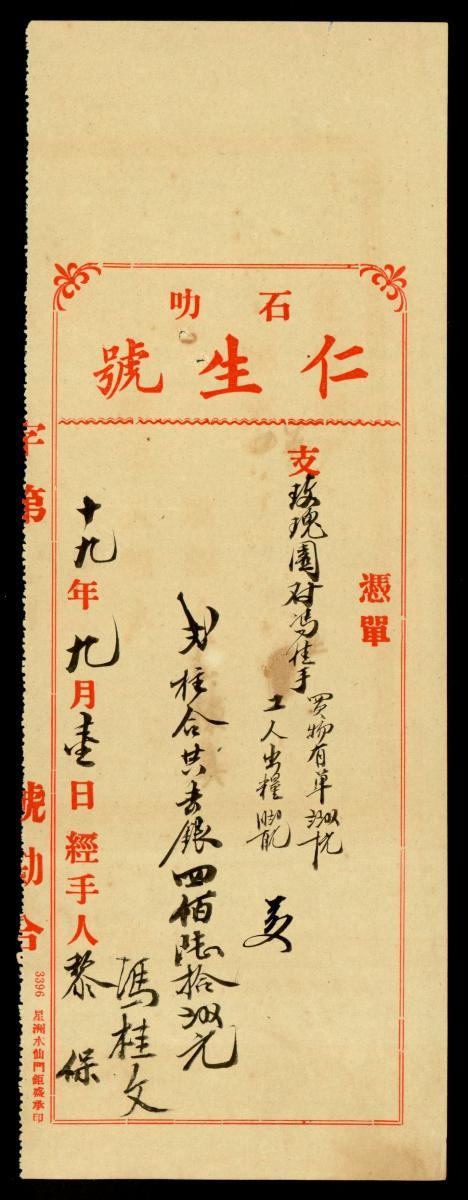 石叻
仁生號
憑單
支玫瑰園对馮桂手
買物有單
工人出糧
弍柱合共去銀四佰陆拾元
馮桂文
十九年九月壹日經手人黎保
字第 號勘合
3396 星洲水仙門鉅盛承印